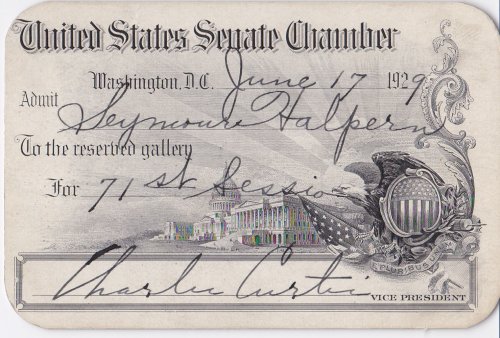 United States Senate Chamber
Washington, D.C. June 17 1929
Admit Seymour Halpern
To the reserved gallery
For 71st Session
PLURIBUS UNUM
Charles Curtis
VICE PRESIDENT